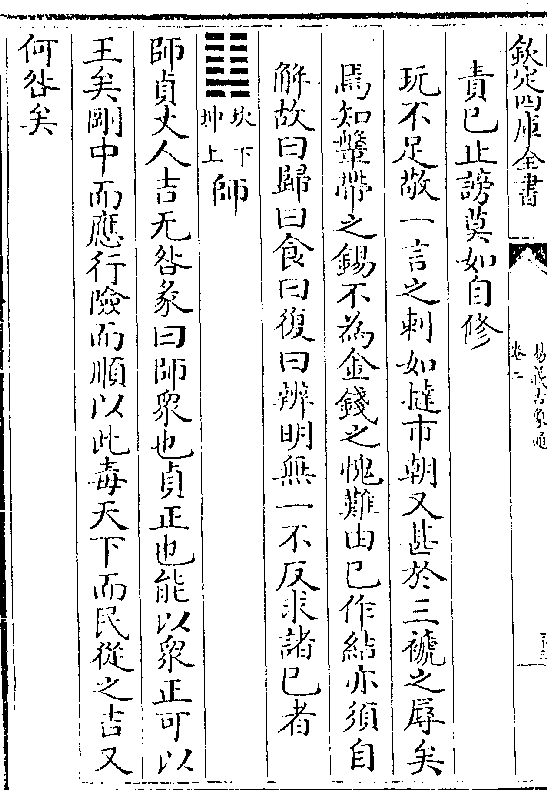 欽定四庫全書
易義古象通
卷二
責已止謗莫如自修
玩不足敵一言之刺如撻市朝又甚於三褫之辱矣
焉知鞶帶之錫不為金錢之愧難由已作結亦須自
解故曰歸曰食曰復曰辨明無一不反求諸已者
坎下
坤上
師
師貞丈人吉无咎彖曰師衆也貞正也能以衆正可以
王矣剛中而應行險而順以此毒天下而民從之吉又
何咎矣